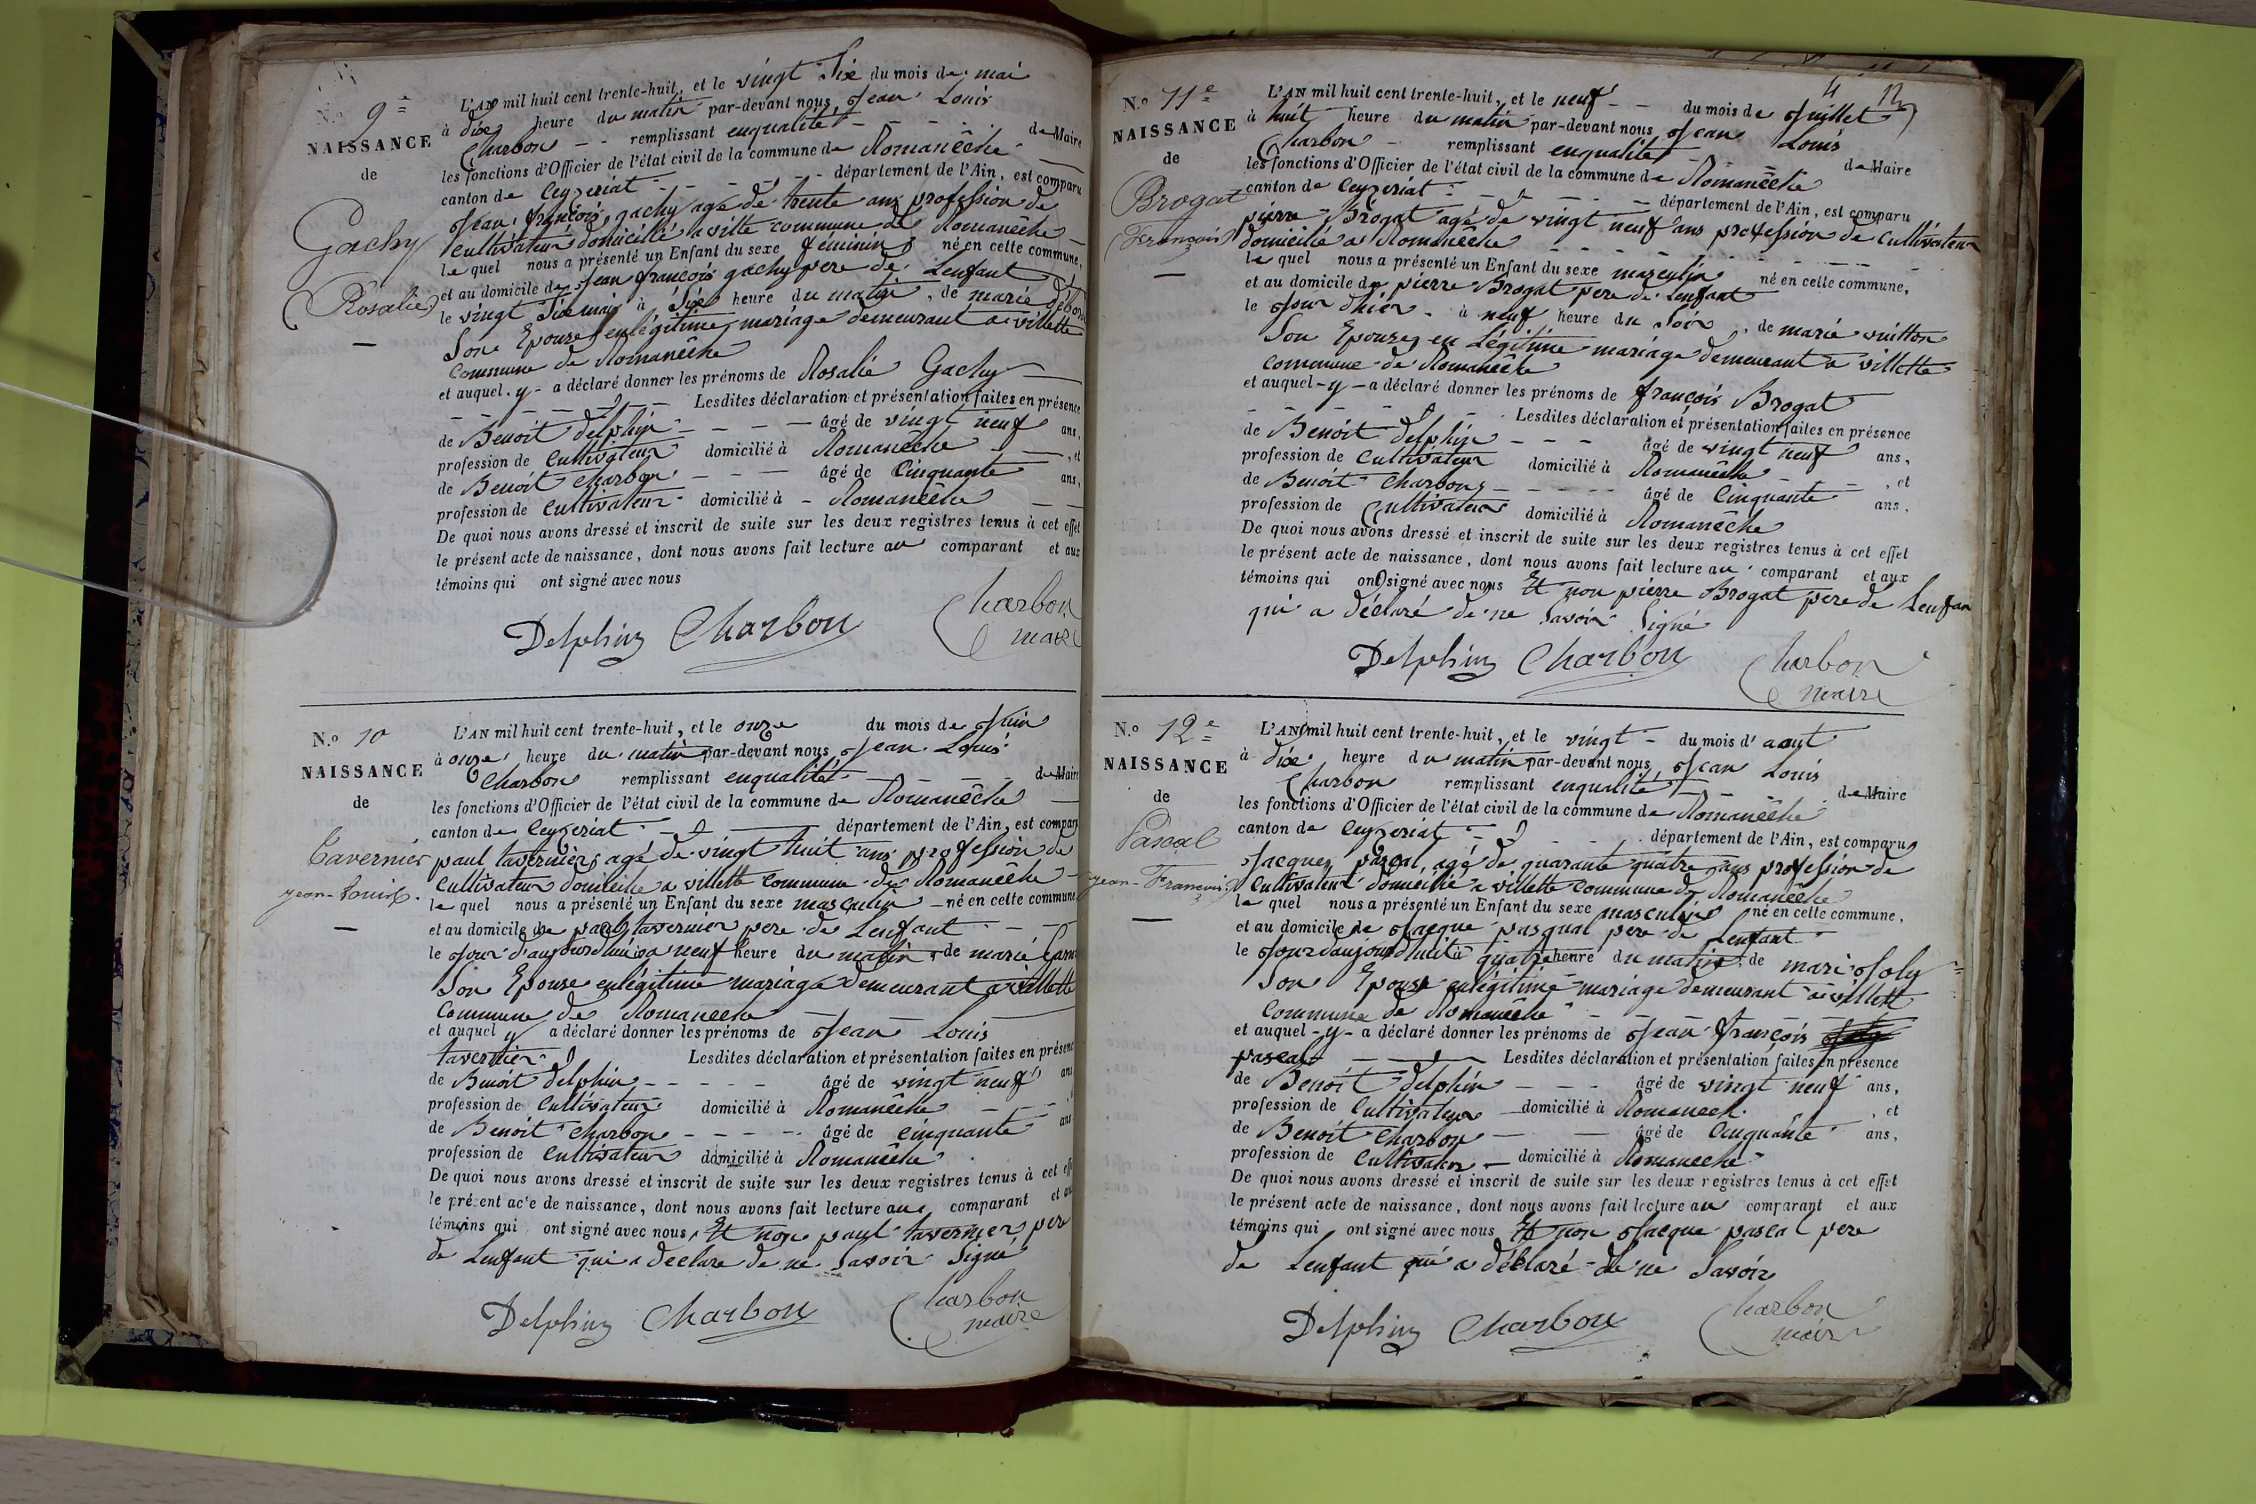 N.o 9e
NAISSANCE
de
Gachy
Rosalie
L'AN mil huit cent trente-huit, et le vingt Six du mois de mai
à dix heure du matin par-devant nous, Jean Louis
Charbon remplissant enqualité de Maire
les fonctions d'Officier de l'état civil de la commune de Romanêche
canton de Ceyzeriat département de l'Ain, est comparu
Jean françois gachy agé de trente ans profession de
Cultivateur domicilié a villette commune de Romanêche
le quel nous a présenté un Enfant du sexe féminin né en cette commune,
et au domicile de Jean françois gachy pere de Lenfant
le vingt Six mai à Six heure du matin, de marie
Son Epouse en légitime mariage demeurant a villette
Commune de Romanêche
et auquel y a déclaré donner les prénoms de Rosalie Gachy
Lesdites déclaration et présentation faites en présence
de Benoit delphin âgé de vingt neuf ans,
profession de Cultivateur domicilié à Romanêche , et
de Benoit Charbon âgé de Cinquante ans,
profession de Cultivateur domicilié à Romanêche
De quoi nous avons dressé et inscrit de suite sur les deux registres tenus à cet effet
le présent acte de naissance, dont nous avons fait lecture au comparant et aux
témoins qui ont signé avec nous
Delphin Charbon Charbon
maire
N.o 10
NAISSANCE
de
Tavernier
jean-Louis
L'AN mil huit cent trente-huit, et le onze du mois de Juin
à onze heure du matin par-devant nous Jean Louis
Charbon remplissant enqualité de Maire
les fonctions d'Officier de l'état civil de la commune de Romanêche
canton de Ceyzeriat département de l'Ain, est comparu
paul tavernier agé de vingt huit ans profession de
Cultivateur domicilié a villette commune de Romanêche
le quel nous a présenté un Enfant du sexe masculin né en cette commune
et au domicile de paul tavernier pere de Lenfant
le Jour d'aujourdhui à neuf heure du matin de marie
Son Epouse enlégitime mariage demeurant a villette
Commune de Romanêche
et auquel y a déclaré donner les prénoms de Jean Louis
tavernier Lesdites déclaration et présentation faites en présence
de Benoit delphin âgé de vingt neuf ans
profession de Cultivateur domicilié à Romanêche
de Benoit Charbon âgé de Cinquante ans
profession de Cultivateur domicilié à Romanêche
De quoi nous avons dressé et inscrit de suite sur les deux registres tenus à cet effet
le présent acte de naissance, dont nous avons fait lecture au comparant et aux
témoins qui ont signé avec nous Et non paul tavernier pere
de Lenfent qui a declare de ne Savoir Signé
Delphin Charbon Charbon
maire
4 12
N.o 11e
NAISSANCE
de
Brogat
François
L'AN mil huit cent trente-huit, et le neuf du mois de Juillet
à huit heure du matin par-devant nous Jean Louis
Charbon remplissant enqualité de Maire
les fonctions d'Officier de l'état civil de la commune de Romanêche
canton de Ceyzeriat département de l'Ain, est comparu
pierre Brogat agé de vingt neuf ans profession de Cultivateur
domicilié a Romanêche
le quel nous a présenté un Enfant du sexe masculin né en cette commune,
et au domicile de pierre Brogat pere de Lenfant
le Jour dhier à neuf heure du Soir, de marie vuitton
Son Epouse en Légitime mariage demeurant a villette
Commune de Romanêche
et auquel y a déclaré donner les prénoms de françois Brogat
Lesdites déclaration et présentation faites en présence
de Benoit delphin âgé de vingt neuf ans,
profession de Cultivateur domicilié à Romanêche , et
de Benoit Charbon âgé de Cinquante ans,
profession de Cultivateur domicilié à Romanêche
De quoi nous avons dressé et inscrit de suite sur les deux registres tenus à cet effet
le présent acte de naissance, dont nous avons fait lecture au comparant et aux
témoins qui ont signé avec nous Et non pierre Brogat pere de Lenfan
qui a déclaré de ne Savoir Signé
Delphin Charbon Charbon
maire
N.o 12e
NAISSANCE
de
Pascal
jean-François
L'AN mil huit cent trente-huit, et le vingt du mois d'aout
à dix heure du matin par-devant nous, Jean Louis
Charbon remplissant enqualité de Maire
les fonctions d'Officier de l'état civil de la commune de Romanêche
canton de Ceyzeriat département de l'Ain, est comparu
Jacques pascal agé de quarante quatre ans profession de
Cultivateur domicilié a villette commune de Romanêche
le quel nous a présenté un Enfant du sexe masculin né en cette commune,
et au domicile de Jacque pasqual pere de Lenfant
le Jour daujourdhuit à quatre heure du matin de mari Joly
Son Epouse enlégitime mariage demeurant a villett
Commune de Romanêche
et auquel y a déclaré donner les prénoms de Jean françois
pascal Lesdites déclaration et présentation faites en présence
de Benoit delphin âgé de vingt neuf ans,
profession de Cultivateur domicilié à Romanech , et
de Benoit Charbon âgé de Cinquante ans,
profession de Cultivateur domicilié à Romaneche
De quoi nous avons dressé et inscrit de suite sur les deux registres tenus à cet effet
le présent acte de naissance, dont nous avons fait lecture au comparant et aux
témoins qui ont signé avec nous Et non Jacque pascal pere
de Lenfant qui a déclaré de ne Savoir
Delphin Charbon Charbon
maire